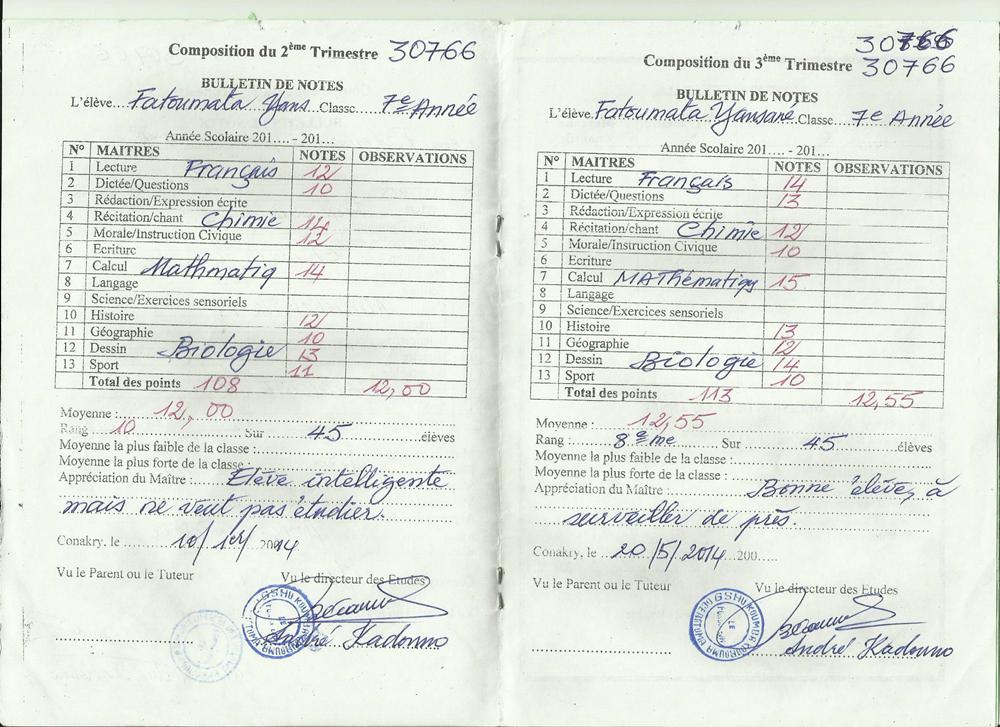 Composition du 2ème Trimestre 30766
BULLETIN DE NOTES
L'élève....Fatoumata Yans.Classe....7e Année
Année Scolaire 201.... - 201...
N° MAITRES NOTES OBSERVATIONS
1 Lecture Français 12
2 Dictée/Questions 10
3 Rédaction/Expression écrite
4 Récitation/chant Chimie 14
5 Morale/Instruction Civique 12
6 Ecriture
7 Calcul Mathmatiq 14
8 Langage
9 Science/Exercices sensoriels
10 Histoire 12
11 Géographie 10
12 Dessin Biologie 13
13 Sport 11
Total des points 108 12,00
Moyenne :......12,00
Rang......10......Sur......45......élèves
Moyenne la plus faible de la classe :
Moyenne la plus forte de la classe :
Appréciation du Maître :....Elève intelligente
mais ne veut pas étudier.
Conakry, le ....10/ 2014
Vu le Parent ou le Tuteur Vu le directeur des Etudes
André Kadouno
30766
Composition du 3ème Trimestre 30766
BULLETIN DE NOTES
L'élève.Fatoumata Yansané.Classe....7e Année
Année Scolaire 201.... - 201...
N° MAITRES NOTES OBSERVATIONS
1 Lecture Français 14
2 Dictée/Questions 13
3 Rédaction/Expression écrite
4 Récitation/chant Chimie 12
5 Morale/Instruction Civique 10
6 Ecriture
7 Calcul MAThématiqs 15
8 Langage
9 Science/Exercices sensoriels
10 Histoire 13
11 Géographie 12
12 Dessin Biologie 14
13 Sport 10
Total des points 113 12,55
Moyenne :......12,55
Rang :....8eme......Sur......45......élèves
Moyenne la plus faible de la classe :
Moyenne la plus forte de la classe :
Appréciation du Maître :......Bonne élève, à
surveiller de près.
Conakry, le ..20/5/2014..200.....
Vu le Parent ou le Tuteur Vu le directeur des Etudes
André Kadouno